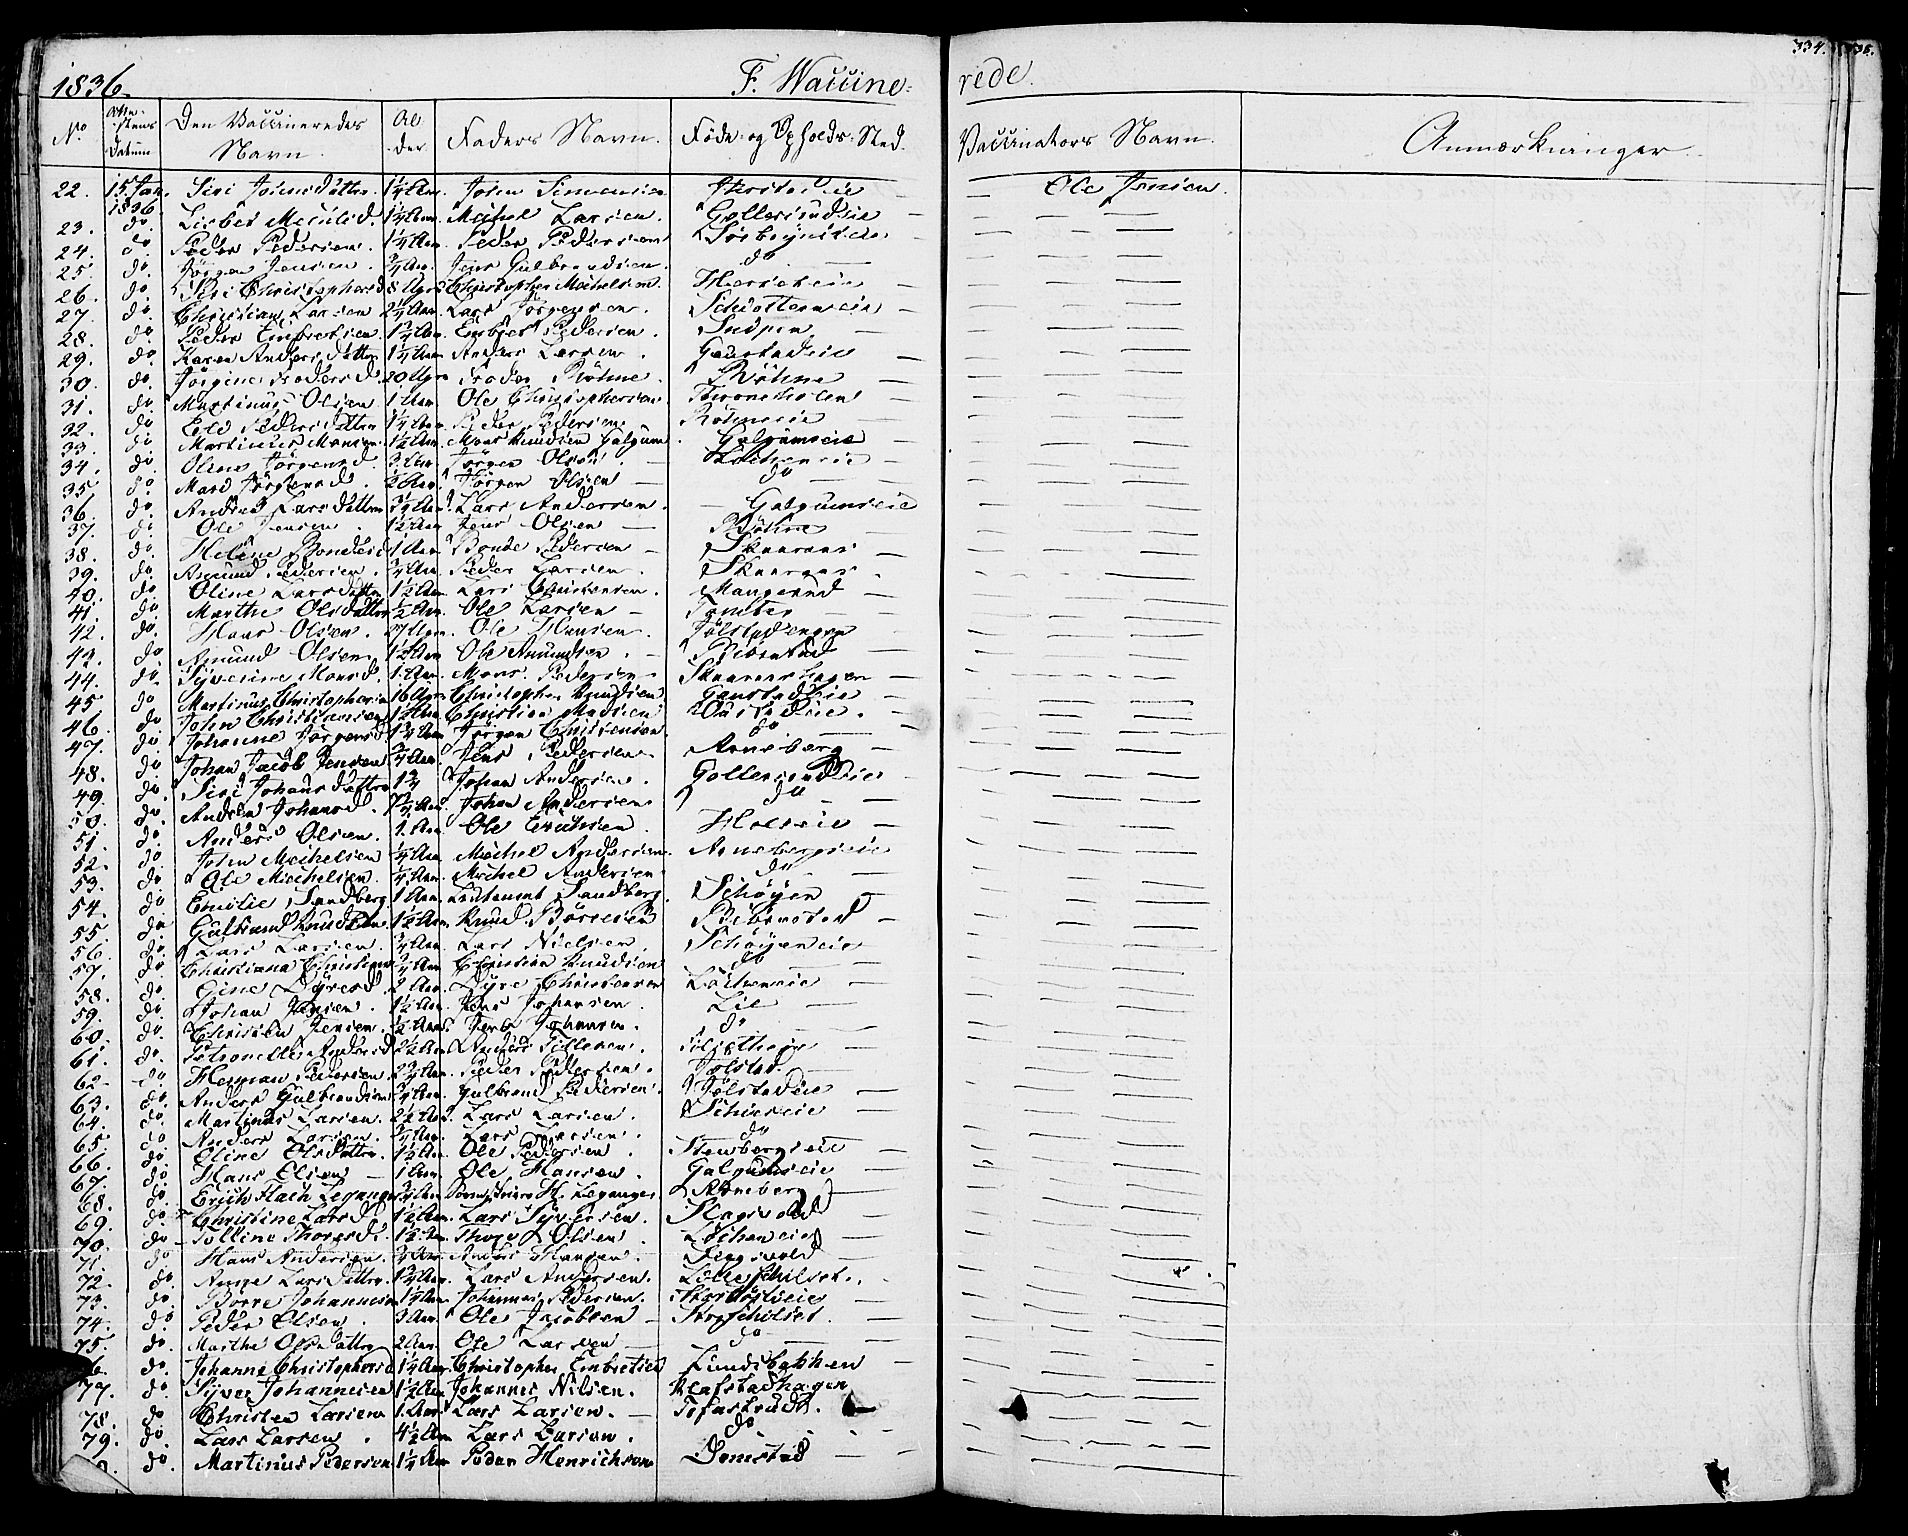 334.
1836. F. Waccine= rede.
No Atte-stens Datum Den Vaccineredes Navn. Al der. Faders Navn. Føde- og Opholds-Sted. Vaccinators Navn. Anmærkninger.
22. 15. Jan. 1836. Siri Johnsdatter. 1 1/4 Aar. John Simensen Ole Jensen.
23. do. Lisbet Michelsd. 1 1/4 Aar. Michel Larsen. Gollerudeie —
24. do. Peder Pedersen. 1 1/4 Aar. Peder Pedersen
25. do. Jörgen Jensen. 3/4 Aar. Jens Gulbrandsen. do —
26. do. Siri Christophersd. 8 Ugr. Christopher Michelsen.
27. do. Christian Larsen 2 1/4 Aar. Lars Jörgensen.
28. do. Peder Embretsen 1 3/4 Aar. Embret Pedersen.
29. do. Karen Andersdatter 1 1/4 Aar. Anders Larsen. Gaustadeie —
30. do. Jörgine Frodesd. 20 Ugr. Frode Röhne. Röhne —
31. do. Martinus Olsen 1 Aar. Ole Christophersen Troneholen
32. do. Eli Pedersdatter 1/4 Aar. Peder Pedersen. Röhneeie —
33. do. Martinus Monsen. 1 1/2 Aar. Mons Knudsen Galgum. Galgumseie
34. do. Oline Jörgensd. 3 Aar. Jörgen Olsen. — Löcheneie —
35. do. Mari Jörgensd. 1/2 Aar. Jörgen Olsen — do
36. do. Larsdatter 3/4 Aar. Lars Andersen. — Galgumseie
37. do. Ole Jensen. 1 1/2 Aar. Jens Olsen — Röhne
38. do. Helene Bondesd. 1 Aar. Bonde Pedersen — Skaaraas —
39. do. Amund Pedersen. 3/4 Aar. Peder Larsen. Skaaraas.
40. do. Oline Larsdatter 1 1/2 Aar. Lars Christensen. Mangerud —
41. do. Marthe Olsdatter 1/2 Aar. Ole Larsen —
42. do. Hans Olsen. 27 Ugr. Ole Hansen. Jölstadengen
43. do. Amund Olsen 1 1/2 Aar. Ole Amundsen. — Ribenstad
44. do. Syverine Monsd. 1 Aar. Mons Pedersen — Skaaraashagen —
45 do Martinus Christophersen 16 Ugr. Christopher Knudsen Gaustadeie —
46. do John Christiansen 1 1/2 Aar. Christian Madsen
47. do. Johanne Jörgensd. 1 3/4 Aar. Jörgen Christensen. do —
48. do Johan Jacob Jensen 3/4 Aar. Jens Pedersen — Arneberg —
49. do. Siri Johansdatter 1 3/4 Johan Andersen. Gollerudeie
50. do. Johansd. 7 3/4 Aar. Johan Andersen do —
51. do. Anders Olsen. 1. Aar. Ole Erichsen. Holseie —
52. do. John Michelsen 1/4 Aar. Michel Andersen. Arnebergseie
53. do Ole Michelsen. 1/4 Aar. Michel Andersen do —
54. do Emilie Sandberg 1 Aar. Leutenant Sandberg Schöyen —
55 do Gulbrand Knudsen 1 1/2 Aar. Knud Börresen Ribenstad —
56. do. Lars Larsen. 3/4 Aar. Lars Nielsen. Schöyeneie
57. do Christiana Christians 3/4 Aar. Christian Knudsen do —
58. do. Gine Dyresd. 2 Aar. Dyre Christensen Löcheneie —
59. do. Johan Jensen. 1 1/2 Aar. Jens Johansen. Lie —
60. do. Christen Jensen. 1/2 Aar. Jens Johansen. do —
61. do. Petronelle Andersd. 2 1/2 Aar.
62. do Herman Pedersen. 2 3/4 Aar. Peder Pedersen. Jölstad. —
63. do. Anders Gulbrandsen 3/4 Aar. Gulbrand Pedersen. Jölstadeie —
64. do. Martinus Larsen. 2 1/2 Aar. Lars Larsen. —
65 do Anders Larsen. 3/4 Aar. Lars Larsen. do —
66. do Oline Olsdatter. 1 1/2 Aar. Ole Pedersen. Stensbergseie —
67. do Hans Olsen — 1 Aar. Ole Hansen. Galgumseie —
68. do. Erich Flach Leganger 3/4 Aar. H. Leganger. Arneberg —
69. do. Christine Larsd. 1 1/2 Aar. Lars Syversen. Slaasvold —
70. do Polline Thoresd. 1 1/2 Aar. Thore Olsen. Löcheneie —
71. do Hans Andersen. 3/4 Aar. Anders Hansen.
72. do. Anne Larsdatter. 1 3/4 Aar. Lars Andersen.
73. do. Börre Johannesen 1 1/4 Aar. Johannes Pedersen. —
74. do. Peder Olsen. 3 Aar. Ole Jacobsen —
75. do. Marthe Olsdatter 2 Aar. Ole Larsen — do —
76. do. Johanne Christophersd. 1 1/4 Aar. Christopher Embretsen Lundsbakken —
77. do. Syver Johannesen 1 1/2 Aar. Johannes Nilsen. Klafstadhagen
78. do Christen Larsen 1. Aar. Lars Larsen. — Tofastrud.
79. do Lars Larsen. 4 1/2 Aar. Lars Larsen. do
do. Martinus Pedersen 1 1/4 Aar. Peder Henrichsen Domstad